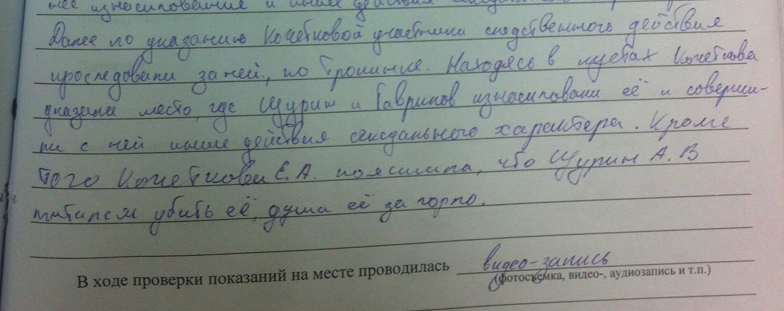 нее изнасилование и иные действия
Далее по указанию Кочетковой участники следственного действия
проследовали за ней, по тропинке. Находясь в кустах Кочеткова
указала место, где Щурин и Гаврилов изнасиловали её и соверши-
ли с ней иные действия сексуального характера. Кроме
того Кочеткова Е.А. пояснила, что Щурин А.В
пытался убить её, душа её за горло.
В ходе проверки показаний на месте проводилась видео-запись
(фотосъемка, видео-, аудиозапись и т.п.)